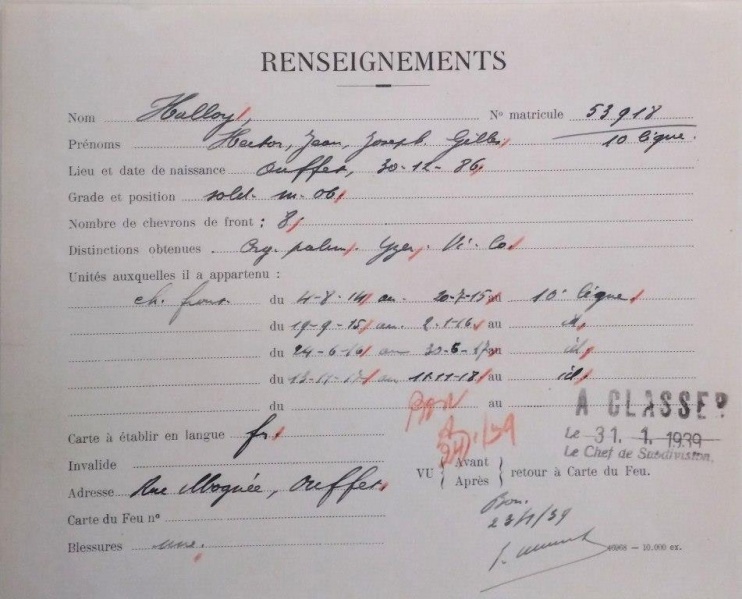 RENSEIGNEMENTS
Nom Halloy, No matricule 53918
Prénoms Hector, Jean, Joseph. Gilles 10 ligne.
Lieu et date de naissance Ouffet, 30-12-86
Grade et position sold. m. 06
Nombre de chevrons de front : 8
Distinctions obtenues . Yser. Vi. Co
Unités auxquelles il a appartenu :
ch. front. du 4-8-14 au 20-7-15 au 10e ligne
du 19-9-15 au 2-1-16 au id
du 24-6-16 au 30-6-17 au id
du 13-11-17 au 11-11-18 au id
du au
BON
A CLASSER
Carte à établir en langue fr
Le 31. 1. 1939
Le Chef de Subdivision.
Invalide
VU Avant Après retour à Carte du Feu.
Adresse Rue Moquée, Ouffet
Carte du Feu no
Bon.
23/1/39
Blessures une.
46968 — 10.000 ex.